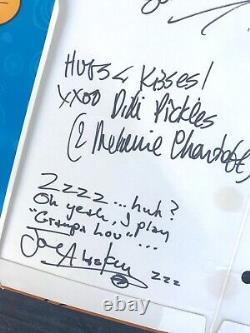 HUGS & KISSES!
XXOO Didi Pickles
(& Melanie Chartoff)
ZZZZ...huh?
Oh yeah, I play
"Grampa Lou"...
Joe Alaskey zzz